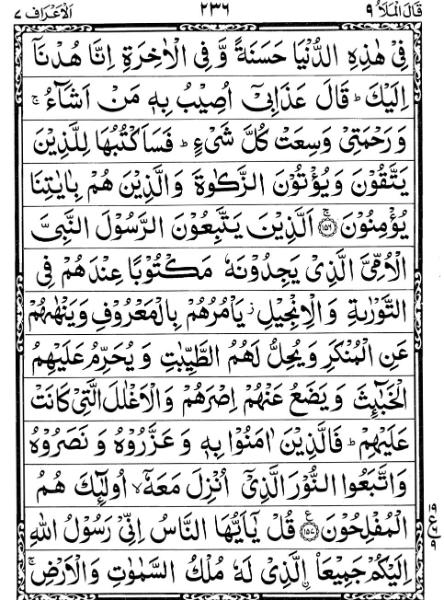 قَالَ الْمَلَاُ ٩ ٢٣٦ اَلْاَعْرَاف ٧
فِىْ هٰذِهِ الدُّنْيَا حَسَنَةً وَّ فِى الْاٰخِرَةِ اِنَّا هُدْنَاۤ
اِلَيْكَ ؕ قَالَ عَذَابِىْۤ اُصِيْبُ بِهٖ مَنْ اَشَآءُ ۚ
وَ رَحْمَتِىْ وَسِعَتْ كُلَّ شَىْءٍ ؕ فَسَاَكْتُبُهَا لِلَّذِيْنَ
يَتَّقُوْنَ وَيُؤْتُوْنَ الزَّكٰوةَ وَالَّذِيْنَ هُمْ بِاٰيٰتِنَا
يُؤْمِنُوْنَ ۚ ﴿١٥٦﴾ اَلَّذِيْنَ يَتَّبِعُوْنَ الرَّسُوْلَ النَّبِىَّ
الْاُمِّىَّ الَّذِىْ يَجِدُوْنَهٗ مَكْتُوْبًا عِنْدَهُمْ فِى
التَّوْرٰىةِ وَ الْاِنْجِيْلِ ز يَاْمُرُهُمْ بِالْمَعْرُوْفِ وَيَنْهٰىهُمْ
عَنِ الْمُنْكَرِ وَ يُحِلُّ لَهُمُ الطَّيِّبٰتِ وَ يُحَرِّمُ عَلَيْهِمُ
الْخَبٰٓئِثَ وَ يَضَعُ عَنْهُمْ اِصْرَهُمْ وَ الْاَغْلٰلَ الَّتِىْ كَانَتْ
عَلَيْهِمْ ؕ فَالَّذِيْنَ اٰمَنُوْا بِهٖ وَ عَزَّرُوْهُ وَ نَصَرُوْهُ
وَ اتَّبَعُوا النُّوْرَ الَّذِىْۤ اُنْزِلَ مَعَهٗۤ ۙ اُولٰٓئِكَ هُمُ
الْمُفْلِحُوْنَ ﴿١٥٧﴾ ع قُلْ يٰۤاَيُّهَا النَّاسُ اِنِّىْ رَسُوْلُ اللّٰهِ
اِلَيْكُمْ جَمِيْعَا ۨ الَّذِىْ لَهٗ مُلْكُ السَّمٰوٰتِ وَ الْاَرْضِ ۚ